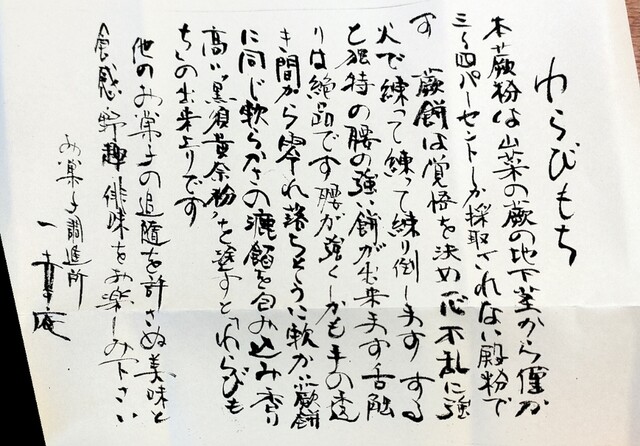 わらびもち
本蕨粉は山菜の蕨の地下茎から僅か
三〜四パーセントしか採取されない殿粉で
す 蕨餅は覚悟を決め一心不乱に強
火で練って練って練り倒します する
と独特の腰の強い餅が出来ます 舌触
りは絶品です 腰が強くしかも手の透
き間から零れ落ちそうに軟か 蕨餅
に同じ軟らかさの漉餡を包み込み香り
高い黒須黄奈粉を塗すと「わらびも
ち」の出来上りです
他のお菓子の追随を許さぬ美味と
食感 野趣 俳味をお楽しみ下さい
お菓子調進所
一幸庵